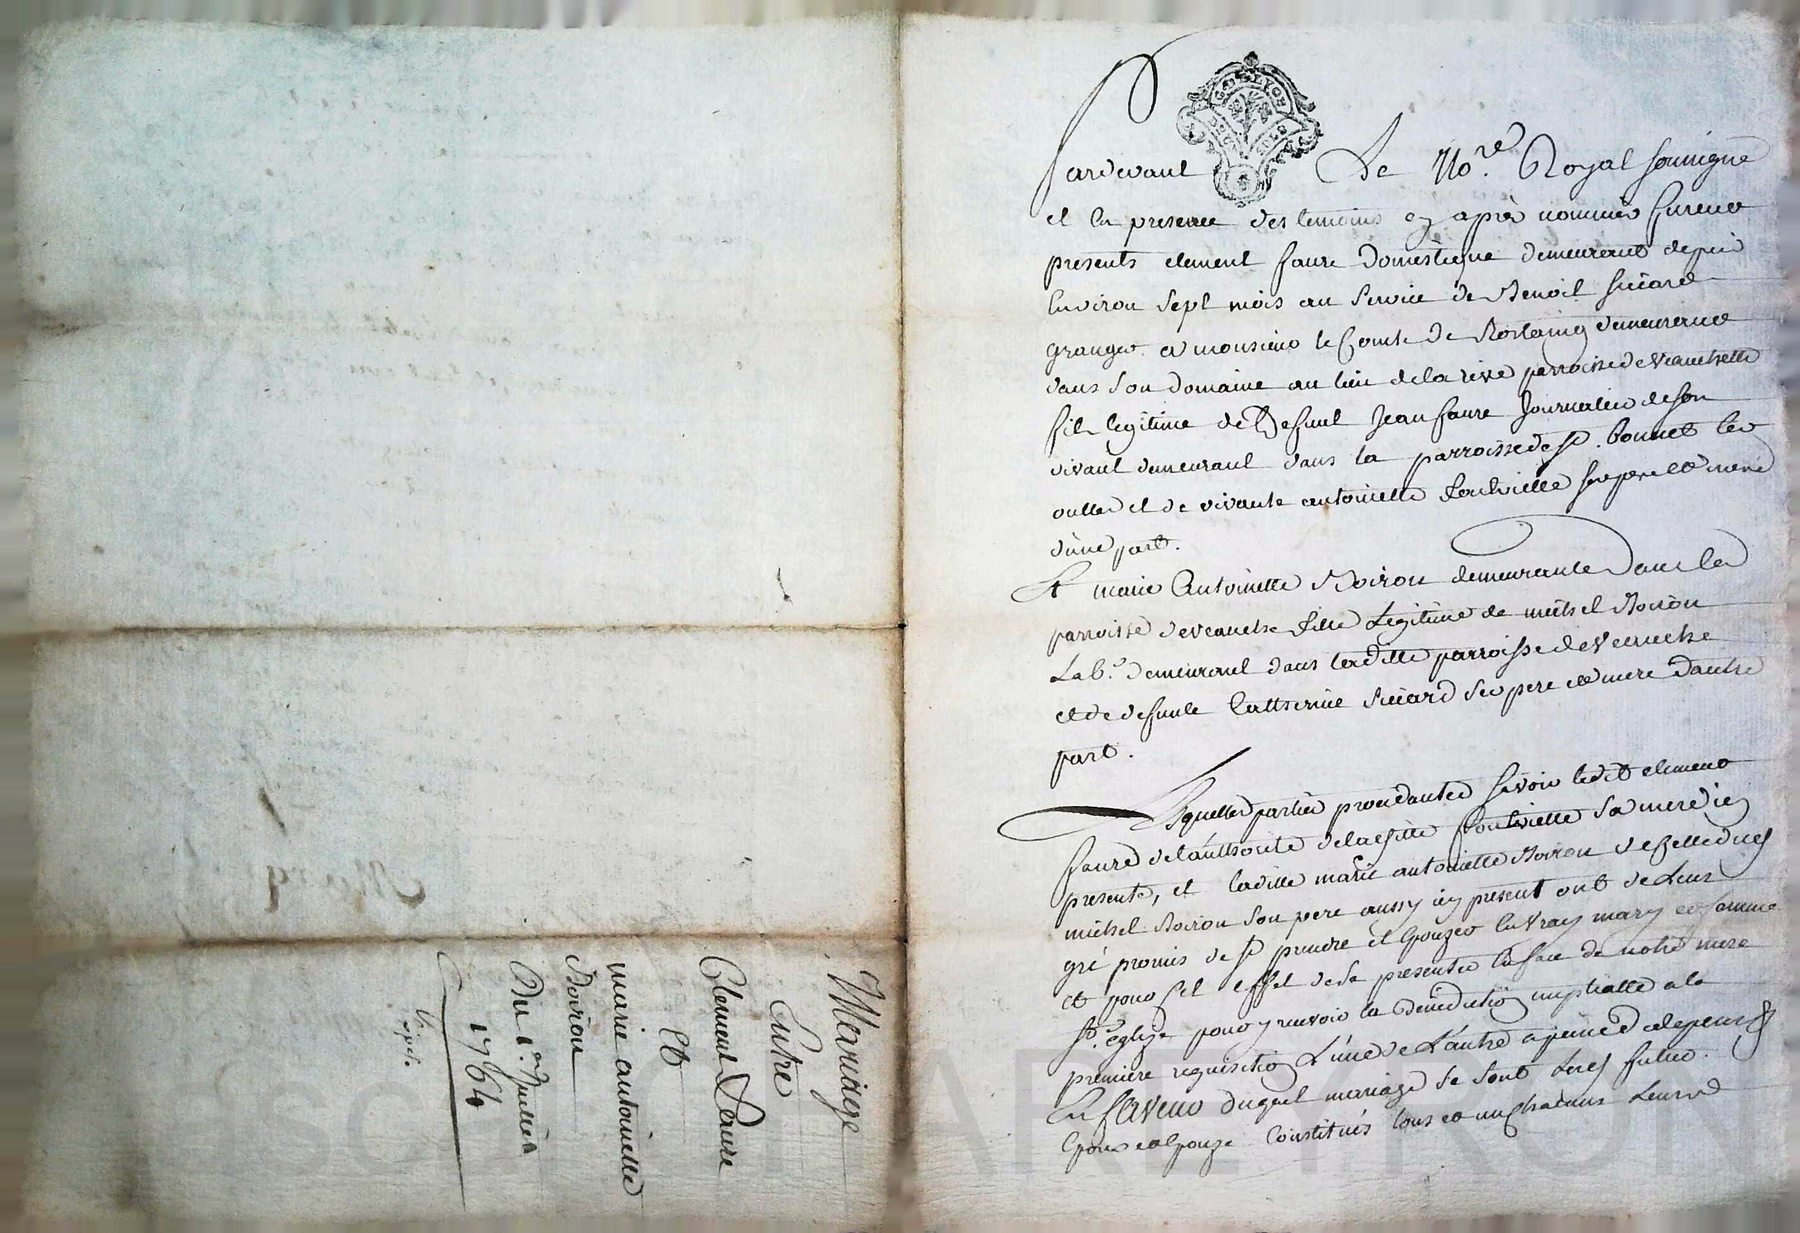 Mariage
Entre
Clement Faure
Et
marie antoinette
Boiron
Du 1er Juillet
1764
Expdi.
GEN LYON
Pardevant Le No.re Royal soussigné
et En presence des temoins cy après nommés furent
presents clement faure Domestique demeurant depuis
Environ sept mois au service de Benoit Sicard
granger a monsieur le Comte de Rostaing demeurant
dans son domaine au lieu de la rive parroisse de Veauchette
fils legitime de Defunt Jean faure Journalier de son
vivant demeurant dans la parroisse de St. bonnet les
oulles et de vivante antoinette fontvielle ses pere et mere
d'une part.
Et marie Antoinette Boiron demeurante Dans la
parroisse de veauche fille Legitime de michel Boiron
Lab.r demeurant dans laditte parroisse de Veauche
et de defunte Catherine Sicard ses pere et mere d'autre
part.
Lesquelles parties procedantes sçavoir ledit clement
faure de l'authorité de laditte fontvielle sa mere icy
presente, et laditte marie antoinette Boiron de celle dud
michel Boiron son pere aussy icy present ont de Leur
gré promis de se prendre et Epouzer En vray mary et femme
et pour cet effet de se presenter En face de notre mere
Ste. eglize pour y recevoir la Benediction nuptialle a la
premiere requisition L'une de L'autre a peine de depens &
En faveur duquel mariage se sont Lesd futurs
Epoux et Epouze Constitués tous et un chacuns Leurs
CHAREYRON